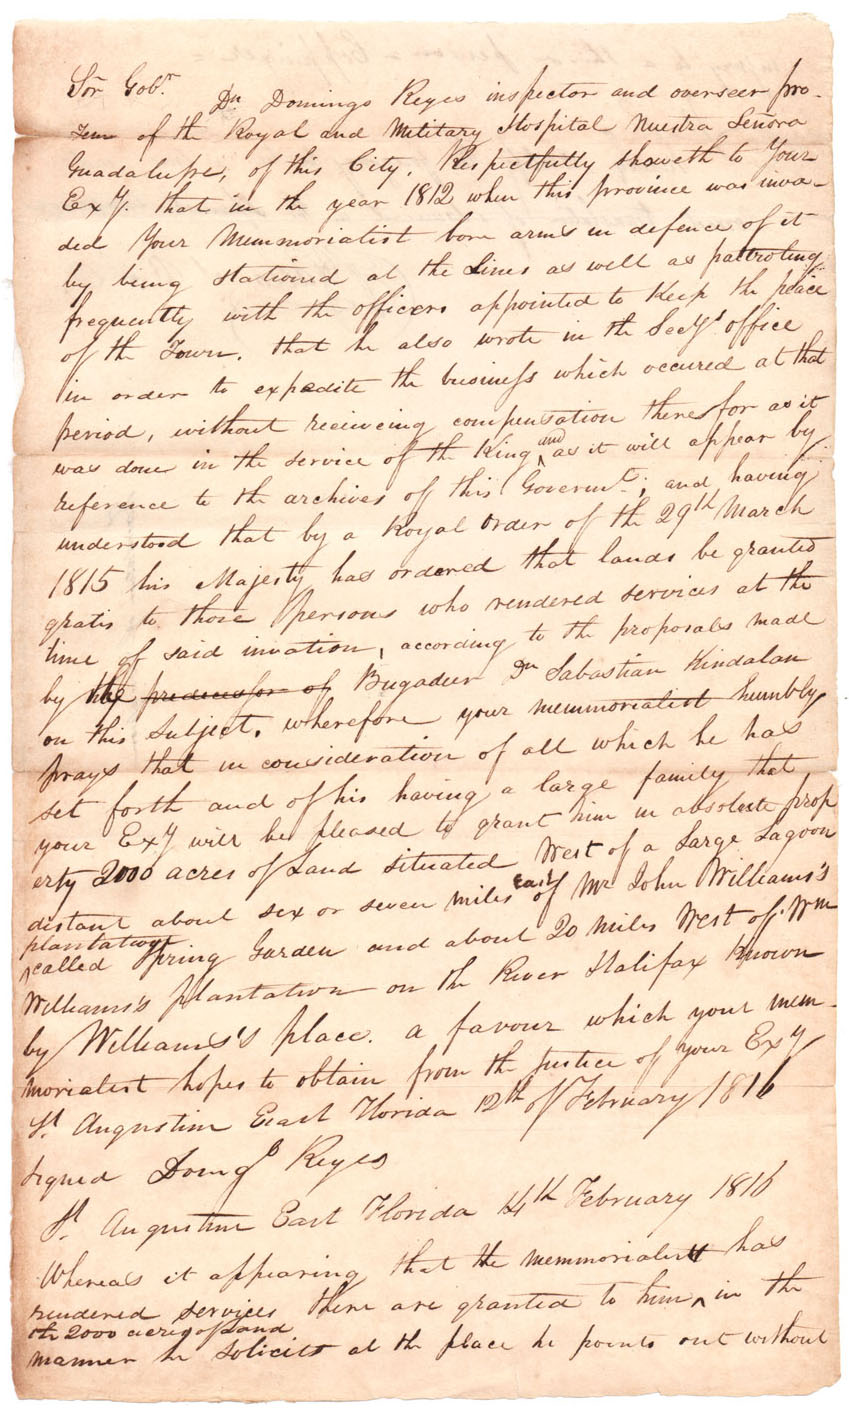 Sor Gobr. Dn Domingo Reyes inspector and overseer pro-
tem of the Royal and Military Hospital Nuestra Señora
Guadalupe, of this City, Respectfully sheweth to Your
Exy. that in the year 1812 when this province was inva-
ded Your Memmorialist born arms in defence of it
by being stationed at the Lines as well as pattroling
frequently with the officers appointed to Keep the peace
of the Town, that he also wrote in the Secys office
in order to expedite the business which occured at that
period, without receiveing compensation theresfor as it
was done in the service of the King, and as it will appear by
reference to the archives of this Governmt; and having
understood that by a Royal order of the 29th March
1815 his Majesty has ordered that lands be granted
gratis to those persons who rendered services at the
time of said invation, according to the proposals made
by the predecessor of Brigadeer Dn Sabastian Kindalan
on this subject. wherefore your memmorialist humbly
prays that in consideration of all which he has
set forth and of his having a large family that
your Exy will be pleased to grant him in absolute prop
erty 2000 acres of Land situated West of a Large Lagoon
distant about sex or seven miles east of Mr John Williams's
plantation
called Spring Garden and about 20 miles West of Wm
Williams's plantation on the River Halifax Known
by Williams's place. a favour which your mem-
morialist hopes to obtain from the Justice of your Exy
St. Augustine East Florida 12th of February 1816
signed Domgo Reyes
St. Augustine East Florida 14th February 1816
Whereas it appearing that the memmorialist has
rendered services there are granted to him ^ in the
the 2000 acres of Land
manner he solicits at the place he points out without